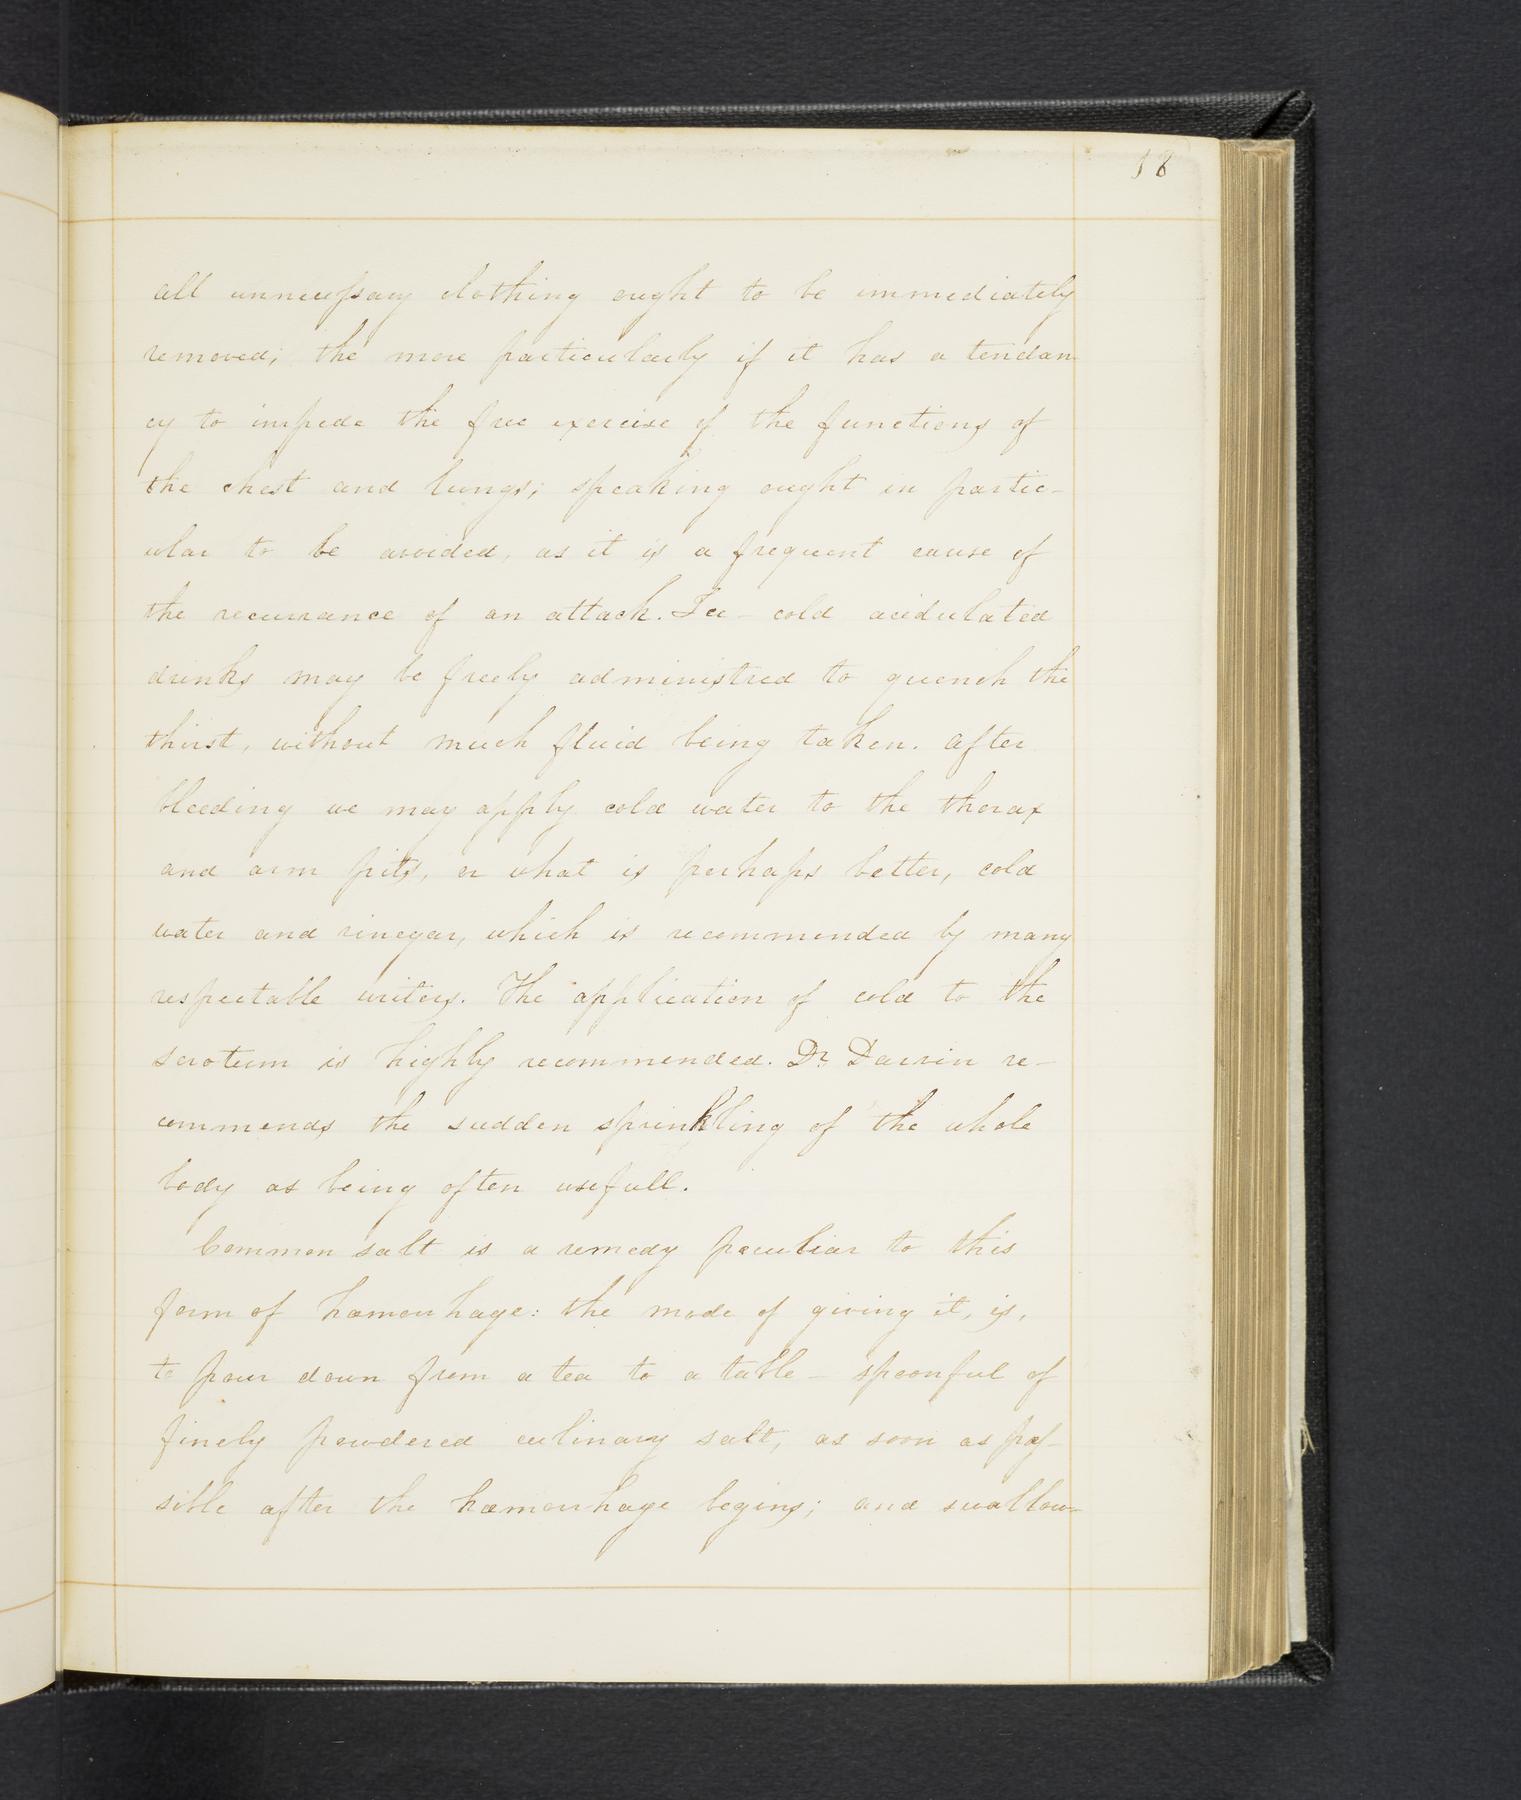 18
all unnecessary clothing ought to be immediately
removed; the more particularly if it has a tendan-
cy to impede the free exercise of the functions of
the chest and lungs; speaking ought in partic-
ular to be avoided, as it is a frequent cause of
the recurrance of an attack. Ice-cold acidulated
drinks may be freely administred to quench the
thirst, without much fluid being taken. after
bleeding we may apply cold water to the thorax
and arm pits, or what is perhaps better, cold
water and vinegar, which is recommended by many
respectable writers. The application of cold to the
scrotum is highly recommended. Dr. Darvin re-
commends the sudden sprinkling of the whole
body as being often usefull.
Common salt is a remedy peculiar to this
form of hæmorrhage: the mode of giving it, is,
to pour down from a tea to a table-spoonful of
finely powdered culinary salt, as soon as pos-
sible after the hæmorrhage begins; and swallow-